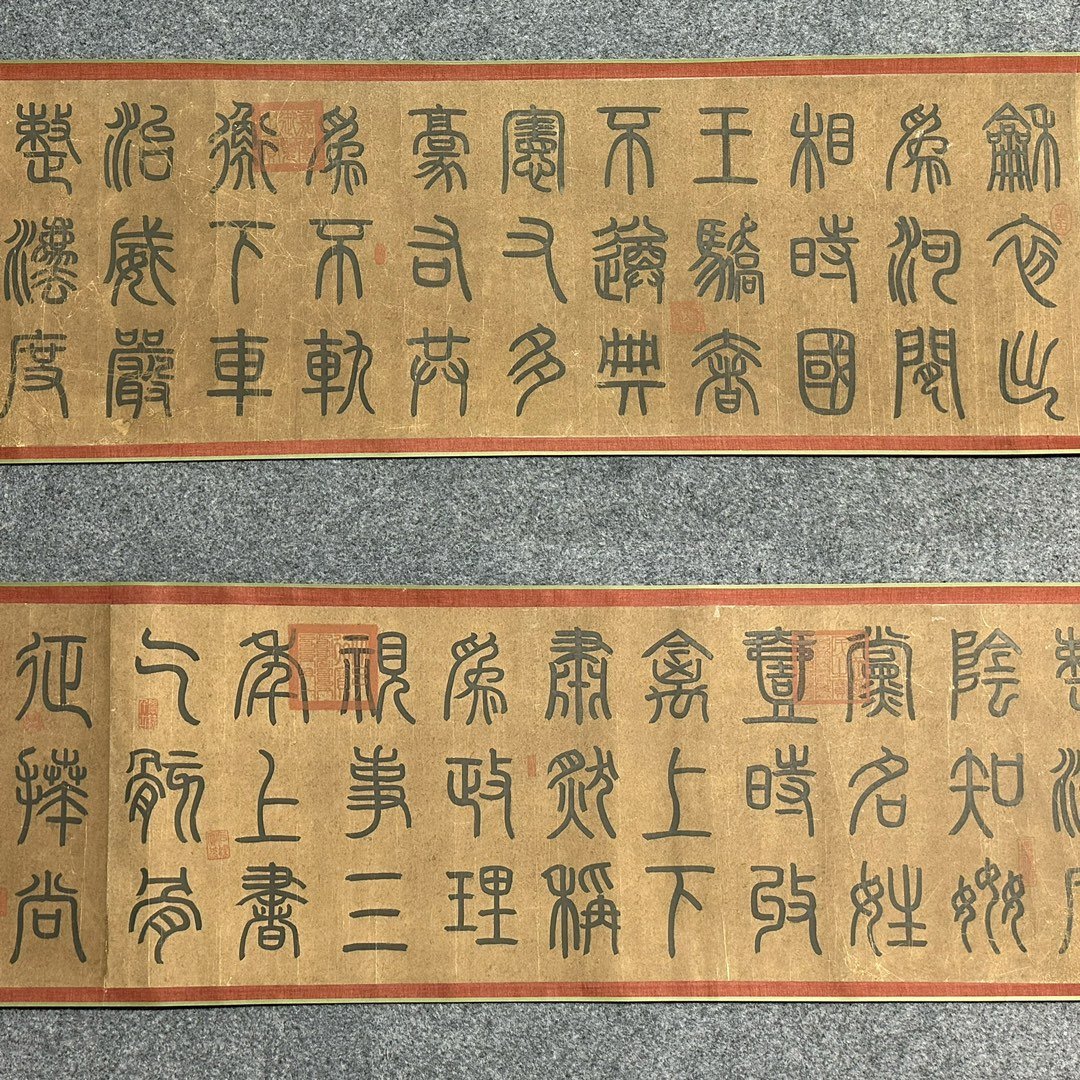 龢初出
爲河間
相時國
王驕奢
不遵典
憲又多
豪右共
爲不軌
衡下車
治威嚴
整灋度
整灋度
陰知姦
黨名姓
壹時收
禽上下
肅然稱
爲政理
視事三
年上書
乞骸骨
征拜尚